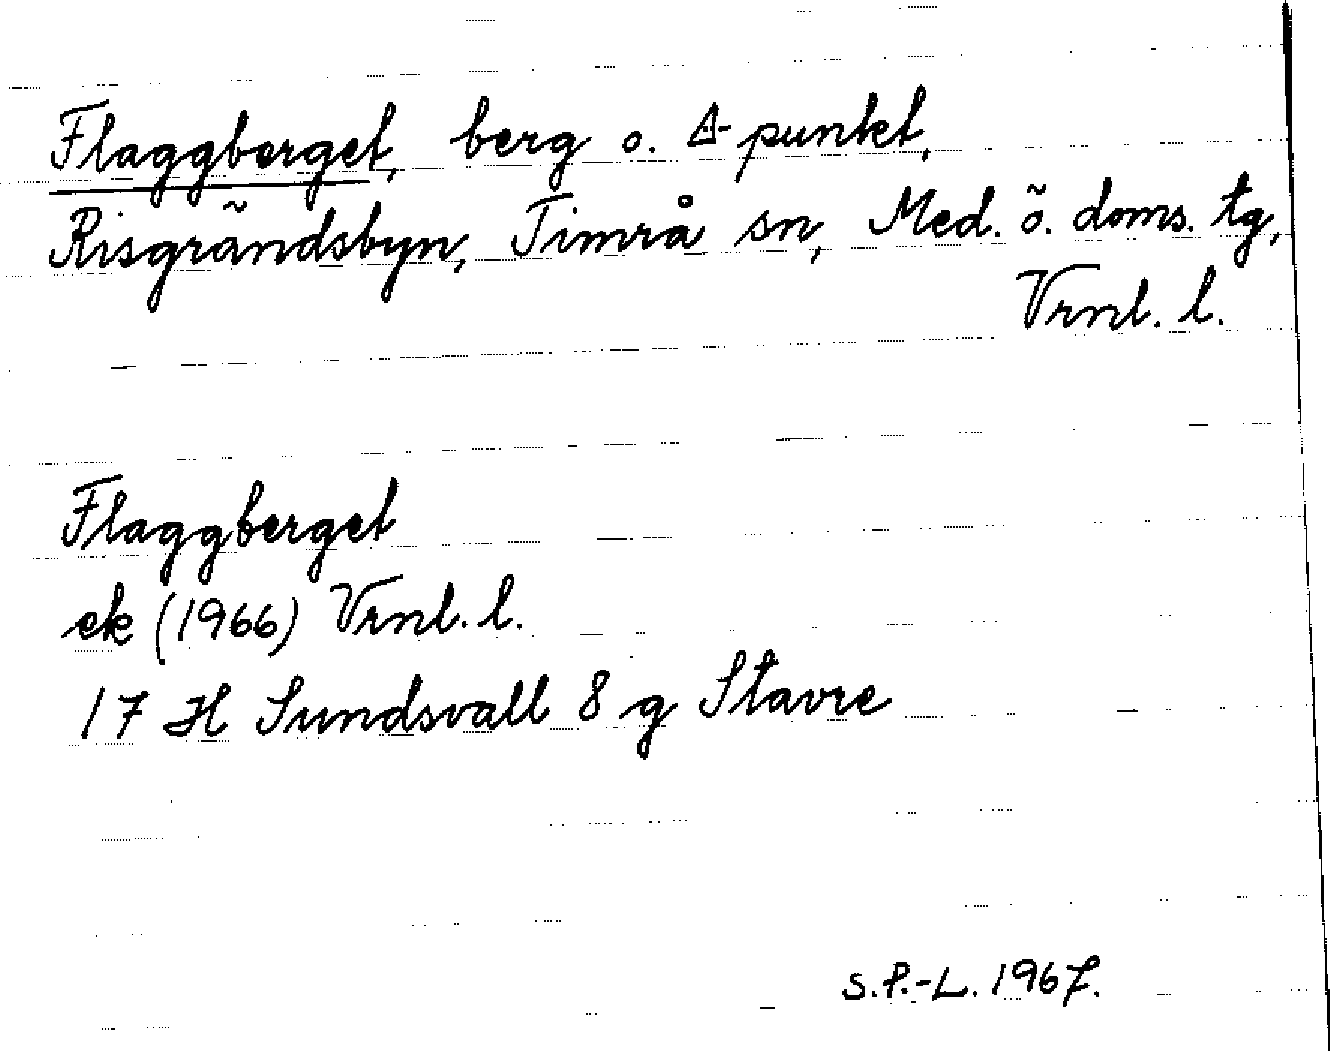 Flaggberget, berg o. △-punkt,
Risgrändsbyn, Timrå sn, Med. ö. doms. tg,
Vrnl. l.
Flaggberget
ek (1966) Vrnl. l.
17 H Sundsvall 8 g Stavre
S.P.-L. 1967.